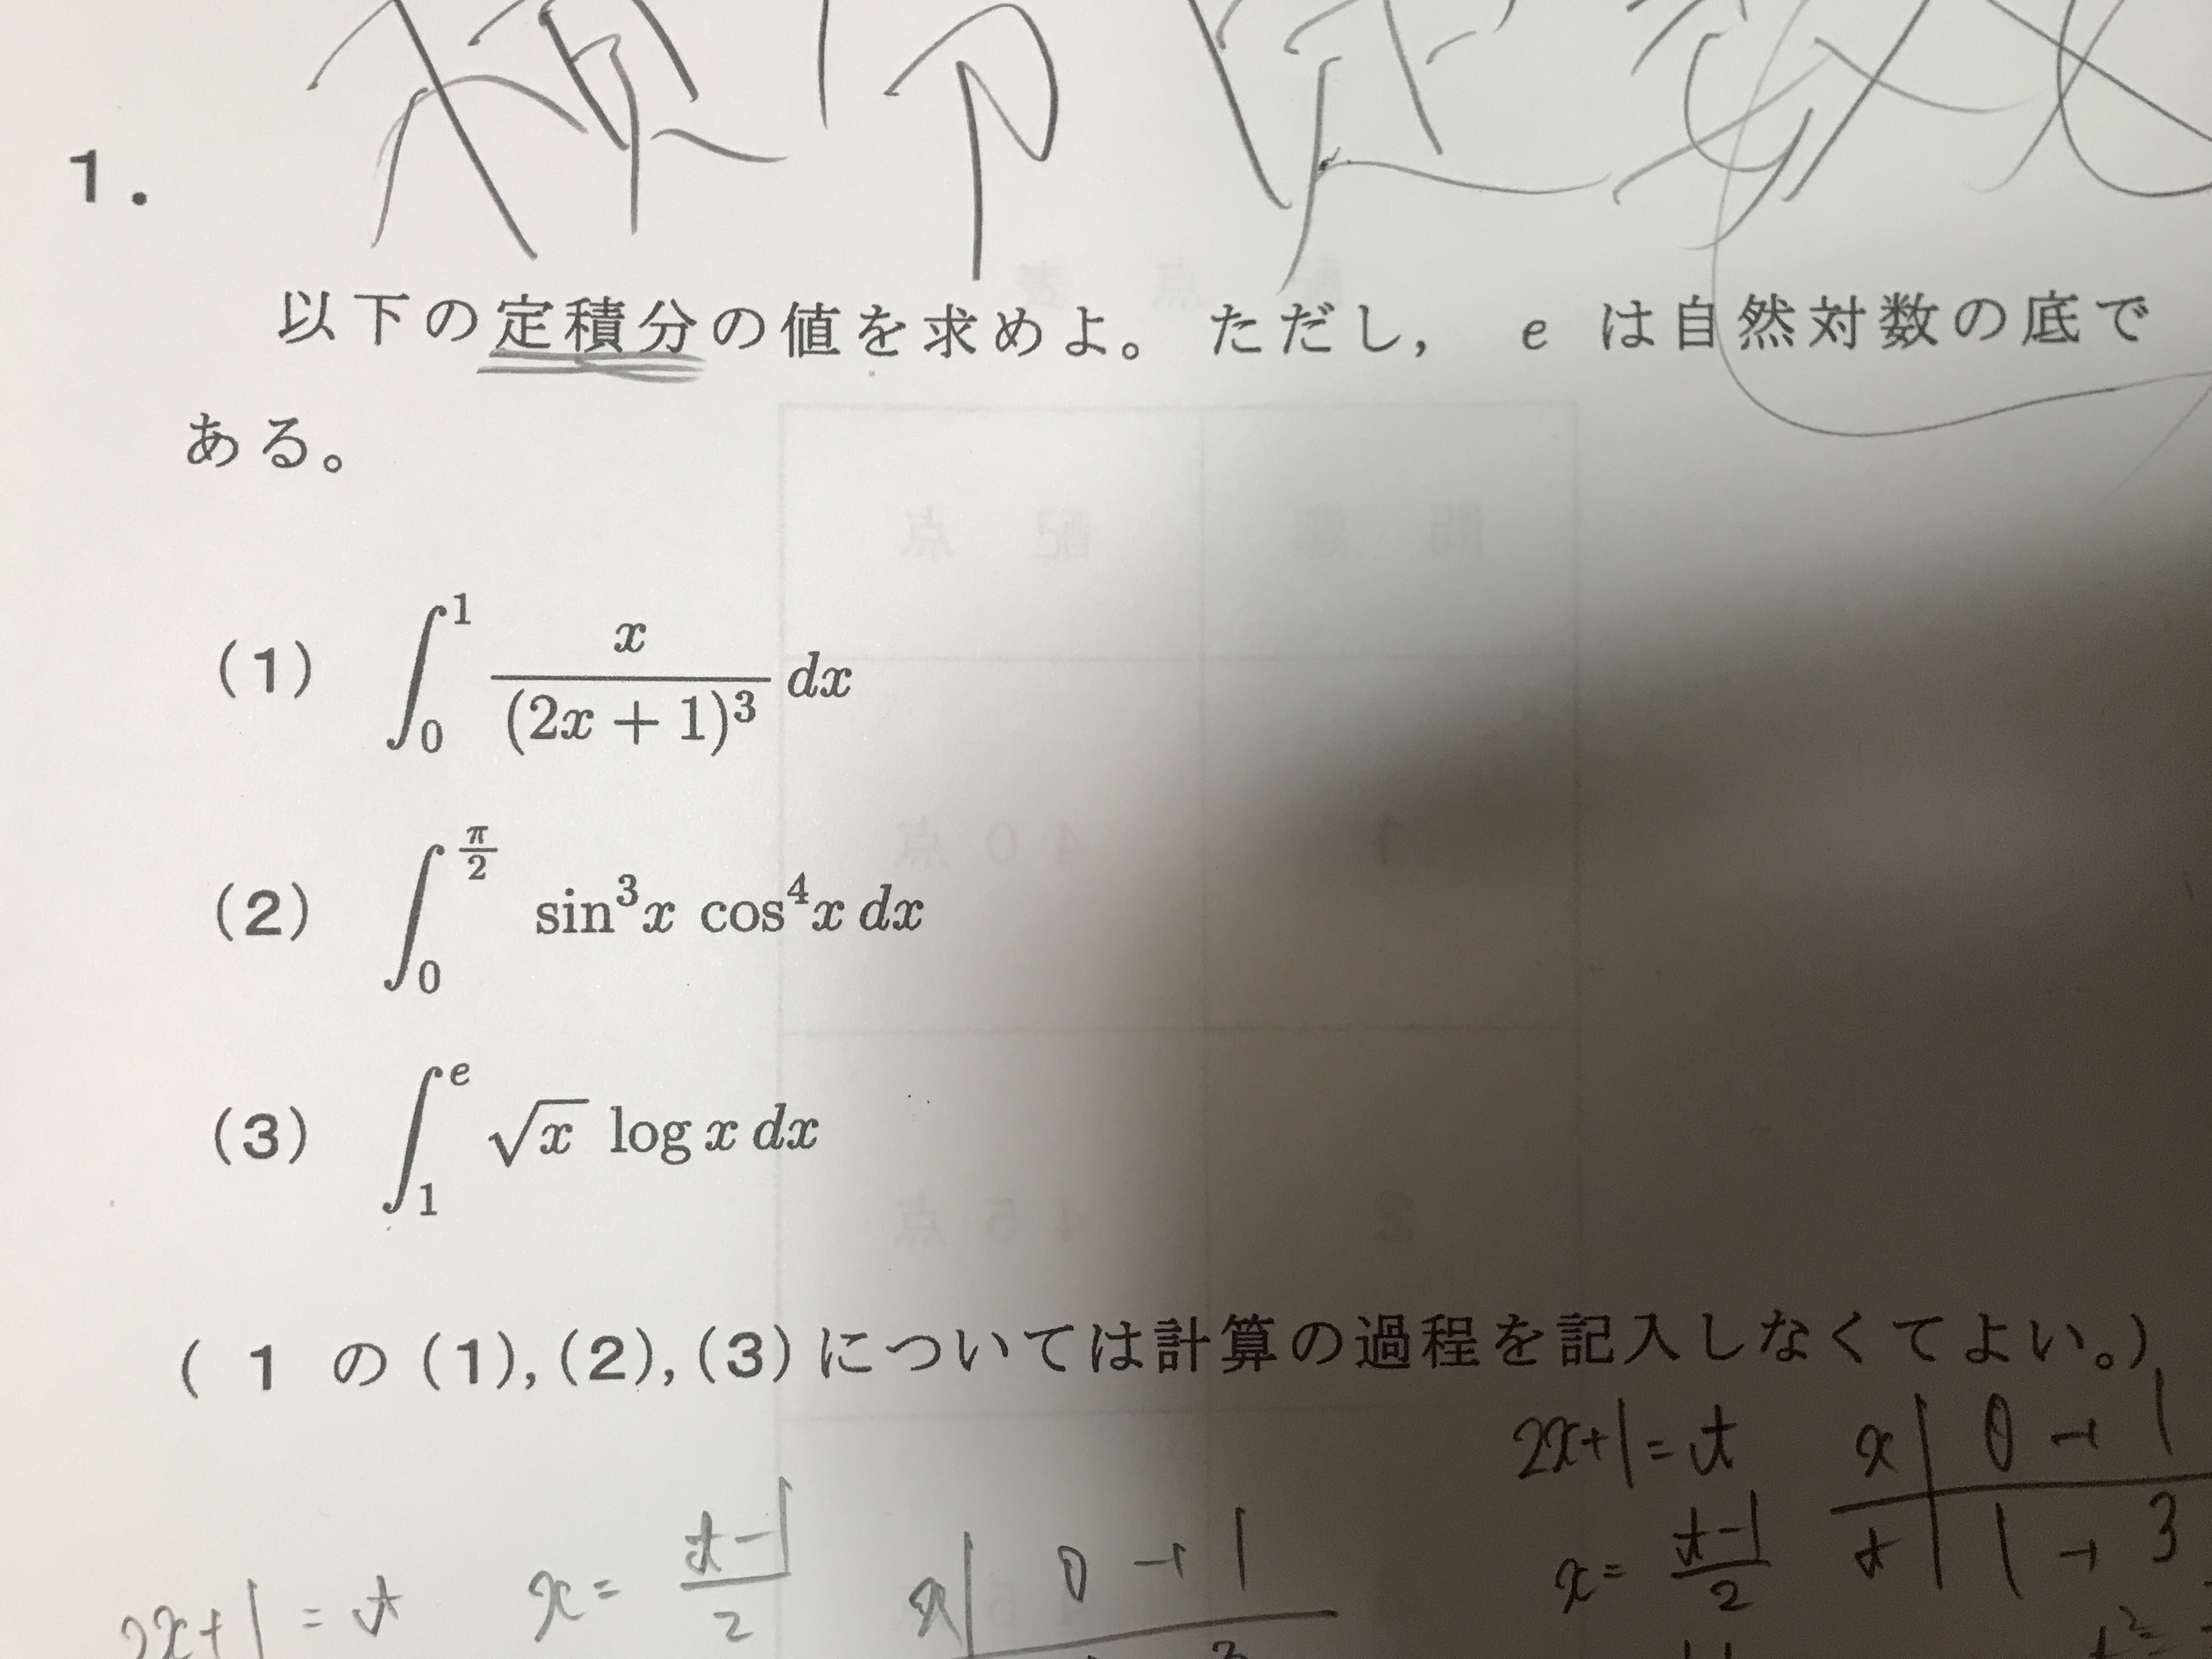 1.
以下の定積分の値を求めよ。ただし， e は自然対数の底で
ある。
(1) ∫_0^1 x/(2x + 1)^3 dx
(2) ∫_0^{π/2} sin^3 x cos^4 x dx
(3) ∫_1^e √x log x dx
( 1 の (1), (2), (3) については計算の過程を記入しなくてよい。)
2x+1=t x | 0→1
x= (t-1)/2 t | 1→3
2x+1=t x= (t-1)/2 x | 0→1